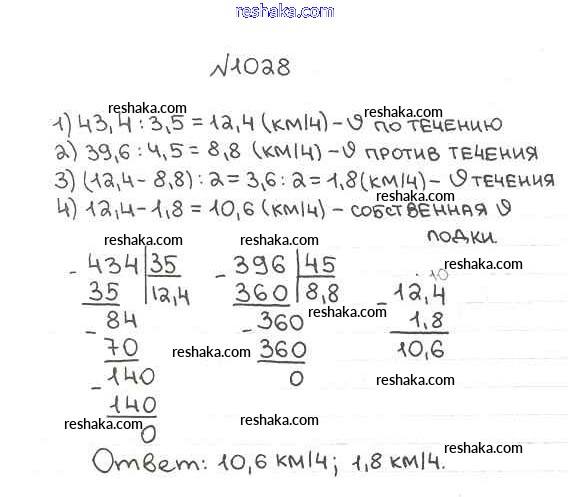 reshaka.com
№1028
reshaka.com reshaka.com
1) 43,4 : 3,5 = 12,4 (км/ч) – v по течению
2) 39,6 : 4,5 = 8,8 (км/ч) – v против течения
reshaka.com reshaka.com
3) (12,4 – 8,8) : 2 = 3,6 : 2 = 1,8 (км/ч) – v течения
4) 12,4 – 1,8 = 10,6 (км/ч) – собственная v
reshaka.com reshaka.com
лодки.
- 434 | 35 - 396 | 45 reshaka.com
10
35 12,4 360 8,8 - 12,4
- 84 reshaka.com - 360 reshaka.com 1,8
70 reshaka.com 360 10,6
- 140 0 reshaka.com
140
reshaka.com 0 reshaka.com
reshaka.com
Ответ: 10,6 км/ч; 1,8 км/ч.
reshaka.com reshaka.com